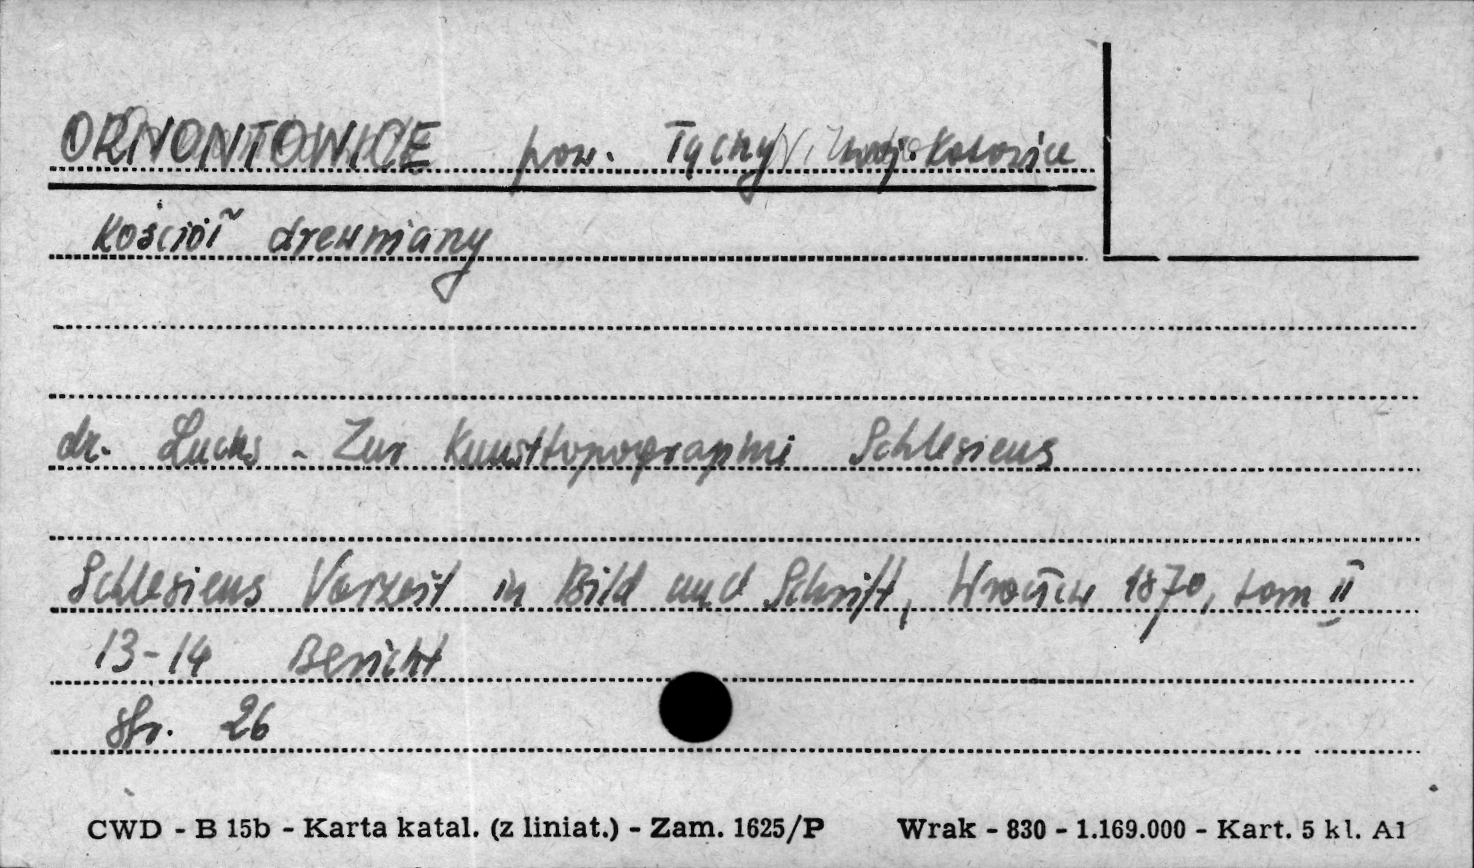 ORNONTOWICE pow. Tychy, woj. Katowice
Kościół drewniany
dr. Luchs - Zur Kunsttopographie Schlesiens
Schlesiens Vorzeit in Bild und Schrift, Wrocław 1870, tom II
13-14 Bericht
str. 26
CWD - B 15b - Karta katal. (z liniat.) - Zam. 1625/P Wrak - 830 - 1.169.000 - Kart. 5 kl. A1